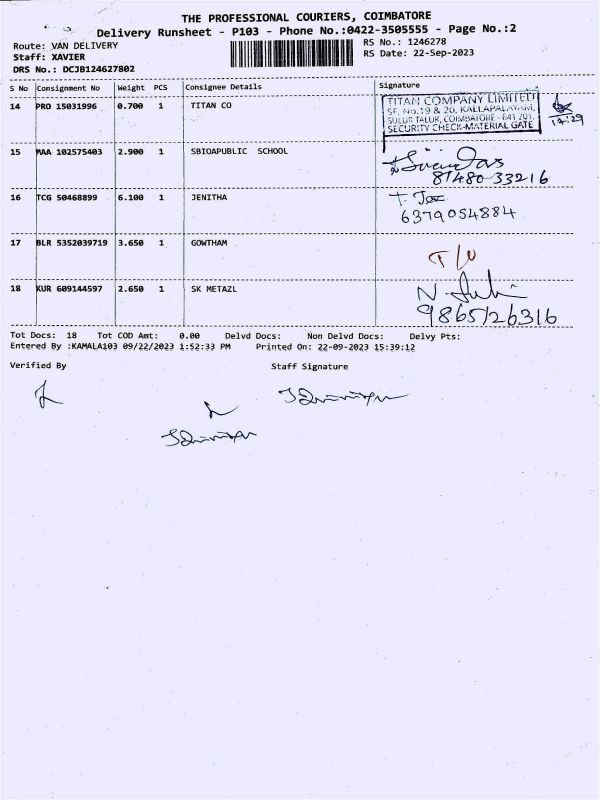 THE PROFESSIONAL COURIERS, COIMBATORE
Delivery Runsheet - P103 - Phone No.:0422-3505555 - Page No.:2
Route: VAN DELIVERY
RS No.: 1246278
Staff: XAVIER
RS Date: 22-Sep-2023
DRS No.: DCJB124627802
S No Consignment No Weight PCS Consignee Details Signature
14 PRO 15031996 0.700 1 TITAN CO
TITAN COMPANY LIMITED
SF. No.19 & 20, KALLAPALAYAM,
SULUR TALUK, COIMBATORE - 641 201.
SECURITY CHECK-MATERIAL GATE
17:29
15 MAA 102575403 2.900 1 SBIOAPUBLIC SCHOOL
81480-33216
16 TCG 50468899 6.100 1 JENITHA
6379054884
17 BLR 5352039719 3.650 1 GOWTHAM
18 KUR 609144597 2.650 1 SK METAZL
9865126316
Tot Docs: 18 Tot COD Amt: 0.00 Delvd Docs: Non Delvd Docs: Delvy Pts:
Entered By :KAMALA103 09/22/2023 1:52:33 PM Printed On: 22-09-2023 15:39:12
Verified By Staff Signature